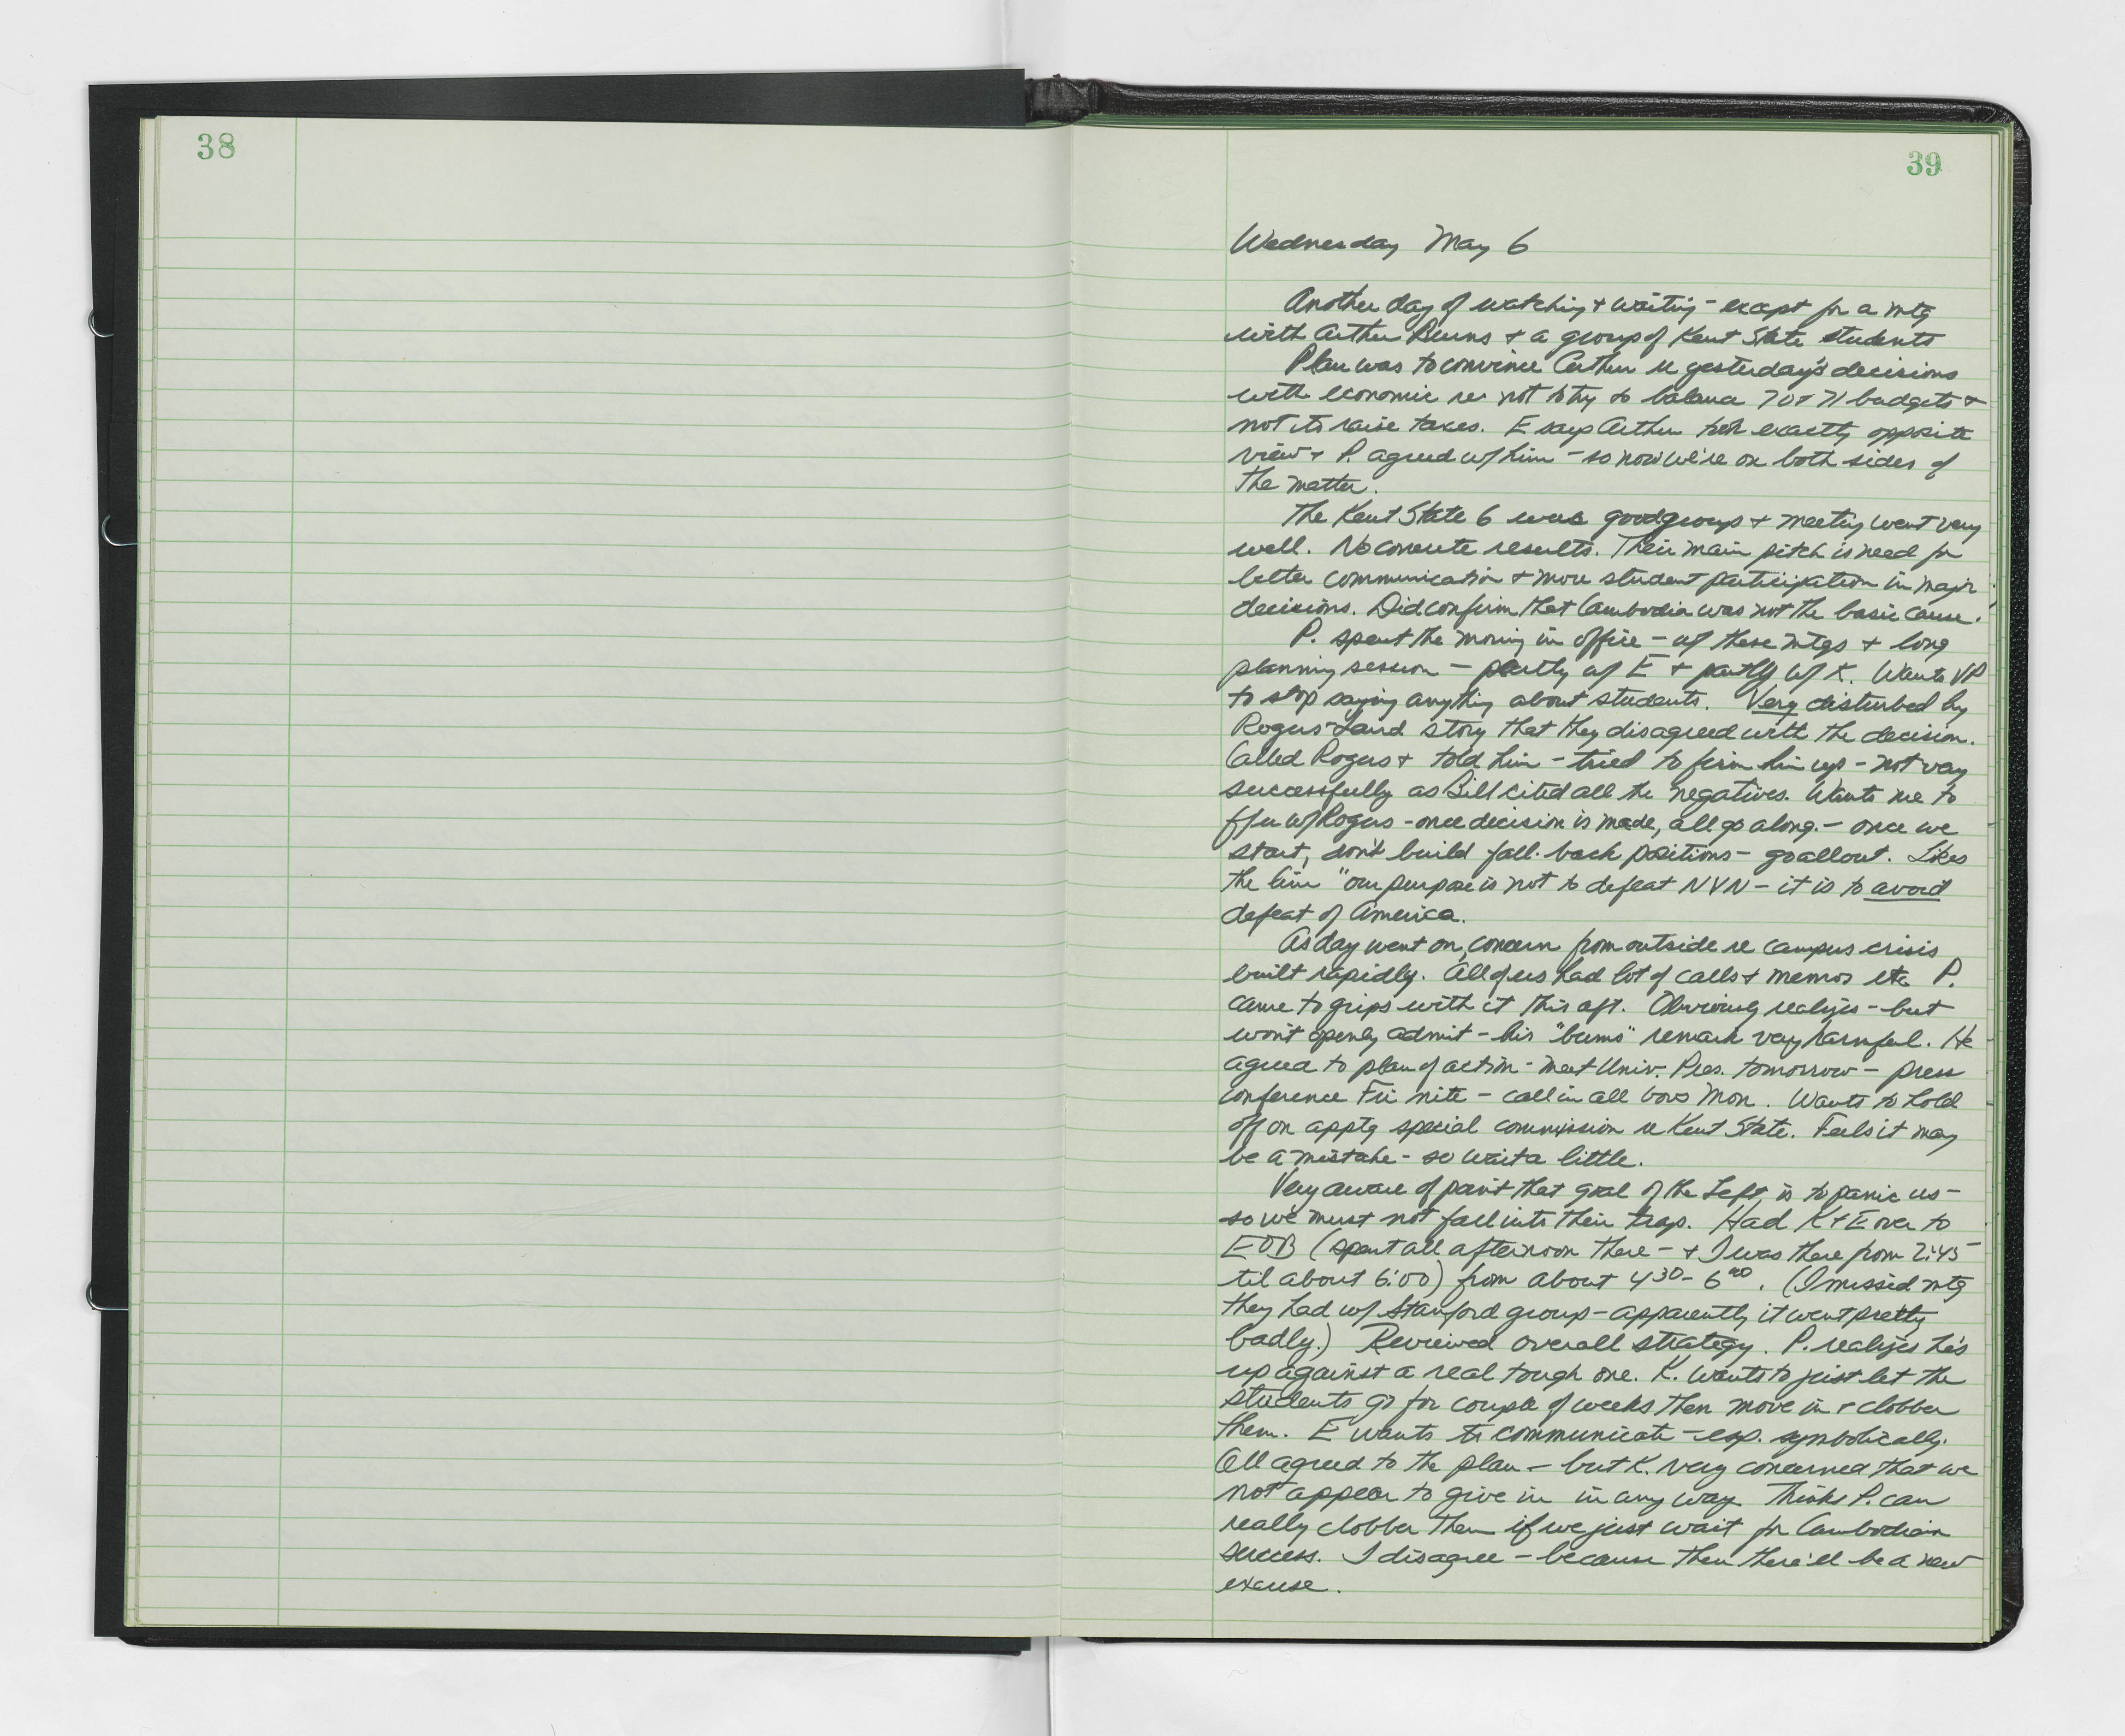 38
39
Wednesday May 6
Another day of watching & waiting - except for a mtg
with Arthur Burns & a group of Kent State students
Plan was to convince Arthur re yesterday's decisions
with economic re not to try to balance 70 & 71 budgets &
not to raise taxes. E says Arthur took exactly opposite
view & P. agreed w/ him - so now we're on both sides of
the matter.
The Kent State 6 were good group & meeting went very
well. No concrete results. Their main pitch is need for
better communication & more student participation in major
decisions. Did confirm that Cambodia was not the basic cause.
P. spent the morning in office - w/ these mtgs & long
planning session - partly w/ E & partly w/ K. Wants VP
to stop saying anything about students. Very disturbed by
Rogers-Laird story that they disagreed with the decision.
Called Rogers & told him - tried to firm him up - not very
successfully as Bill cited all the negatives. Wants me to
f/u w/ Rogers - once decision is made, all go along. - once we
start, don't build fall-back positions - go all out. Likes
the line "our purpose is not to defeat NVN - it is to avoid
defeat of America.
As day went on, concern from outside re campus crisis
built rapidly. All of us had lot of calls & memos etc P.
came to grips with it this aft. Obviously realizes - but
won't openly admit - his "bums" remark very harmful. He
agreed to plan of action - meet Univ. Pres. tomorrow - press
conference Fri nite - call in all Govs Mon. Wants to hold
off on apptg special commission re Kent State. Feels it may
be a mistake - so wait a little.
Very aware of point that goal of the Left is to panic us -
so we must not fall into their trap. Had K & E over to
EOB (spent all afternoon there - & I was there from 2:45
til about 6:00) from about 4 30 - 6 00. (I missed mtg
they had w/ Stanford group - apparently it went pretty
badly.) Reviewed overall strategy. P. realizes he's
up against a real tough one. K. wants to just let the
students go for couple of weeks then move in & clobber
them. E wants to communicate - esp. symbolically.
All agreed to the plan - but K. very concerned that we
not appear to give in in any way. Thinks P. can
really clobber them if we just wait for Cambodian
success. I disagree - because then there'll be a new
excuse.